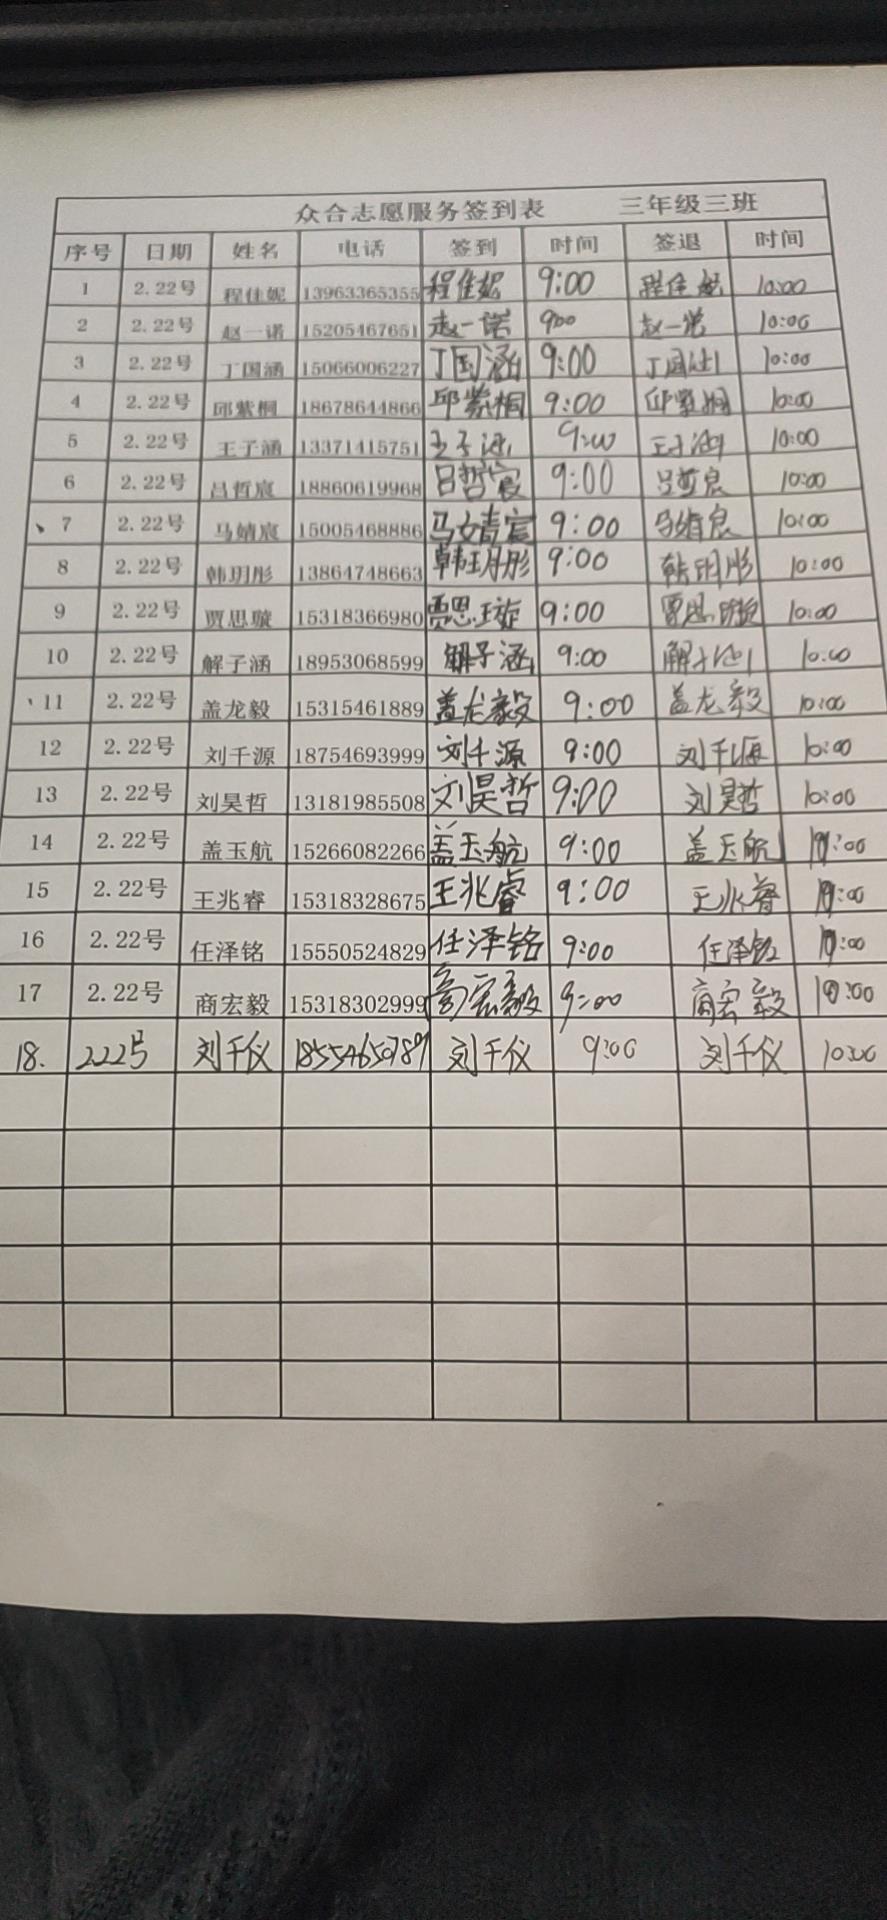 众合志愿服务签到表 三年级三班
序号 日期 姓名 电话 签到 时间 签退 时间
1 2.22号 程佳妮 13963365355 程佳妮 9:00 程佳妮 10:00
2 2.22号 赵一诺 15205467651 赵一诺 9:00 赵一诺 10:00
3 2.22号 丁国涵 15066006227 丁国涵 9:00 丁国涵 10:00
4 2.22号 邱紫桐 18678644866 邱紫桐 9:00 邱紫桐 10:00
5 2.22号 王子涵 13371415751 王子涵 9:00 王子涵 10:00
6 2.22号 吕哲宸 18860619968 吕哲宸 9:00 吕哲宸 10:00
、7 2.22号 马婧宸 15005468886 马婧宸 9:00 马婧宸 10:00
8 2.22号 韩玥彤 13864748663 韩玥彤 9:00 韩玥彤 10:00
9 2.22号 贾思璇 15318366980 贾思璇 9:00 贾思璇 10:00
10 2.22号 解子涵 18953068599 解子涵 9:00 解子涵 10:00
、11 2.22号 盖龙毅 15315461889 盖龙毅 9:00 盖龙毅 10:00
12 2.22号 刘千源 18754693999 刘千源 9:00 刘千源 10:00
13 2.22号 刘昊哲 13181985508 刘昊哲 9:00 刘昊哲 10:00
14 2.22号 盖玉航 15266082266 盖玉航 9:00 盖玉航 10:00
15 2.22号 王兆睿 15318328675 王兆睿 9:00 王兆睿 10:00
16 2.22号 任泽铭 15550524829 任泽铭 9:00 任泽铭 10:00
17 2.22号 商宏毅 15318302999 商宏毅 9:00 商宏毅 10:00
18. 2.22号 刘千仪 18554650789 刘千仪 9:00 刘千仪 10:00